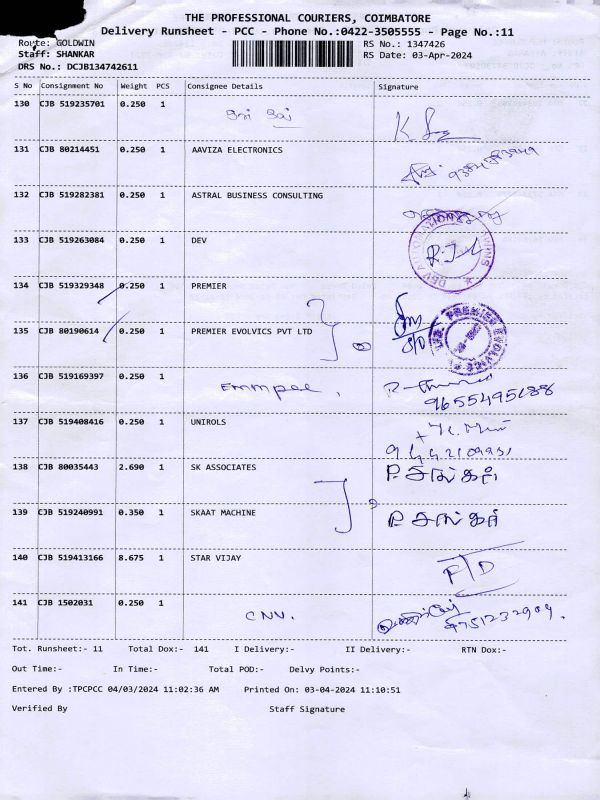 THE PROFESSIONAL COURIERS, COIMBATORE
Delivery Runsheet - PCC - Phone No.:0422-3505555 - Page No.:11
Route: GOLDWIN
RS No.: 1347426
Staff: SHANKAR
RS Date: 03-Apr-2024
DRS No.: DCJB134742611
S No Consignment No Weight PCS Consignee Details Signature
130 CJB 519235701 0.250 1 Sri Sai
131 CJB 80214451 0.250 1 AAVIZA ELECTRONICS
132 CJB 519282381 0.250 1 ASTRAL BUSINESS CONSULTING
133 CJB 519263084 0.250 1 DEV
134 CJB 519329348 0.250 1 PREMIER
135 CJB 80190614 0.250 1 PREMIER EVOLVICS PVT LTD
136 CJB 519169397 0.250 1 Emmpee,
9655495688
137 CJB 519408416 0.250 1 UNIROLS
138 CJB 80035443 2.690 1 SK ASSOCIATES
139 CJB 519240991 0.350 1 SKAAT MACHINE
140 CJB 519413166 8.675 1 STAR VIJAY F/D
141 CJB 1502031 0.250 1 CNV. 9751232909.
Tot. Runsheet:- 11 Total Dox:- 141 I Delivery:- II Delivery:- RTN Dox:-
Out Time:- In Time:- Total POD:- Delvy Points:-
Entered By :TPCPCC 04/03/2024 11:02:36 AM Printed On: 03-04-2024 11:10:51
Verified By Staff Signature